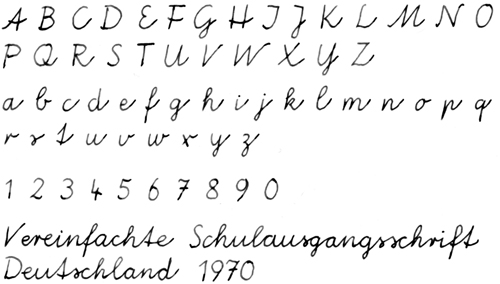 A B C D E F G H I J K L M N O
P Q R S T U V W X Y Z
a b c d e f g h i j k l m n o p q
r s t u v w x y z
1 2 3 4 5 6 7 8 9 0
Vereinfachte Schulausgangsschrift
Deutschland 1970